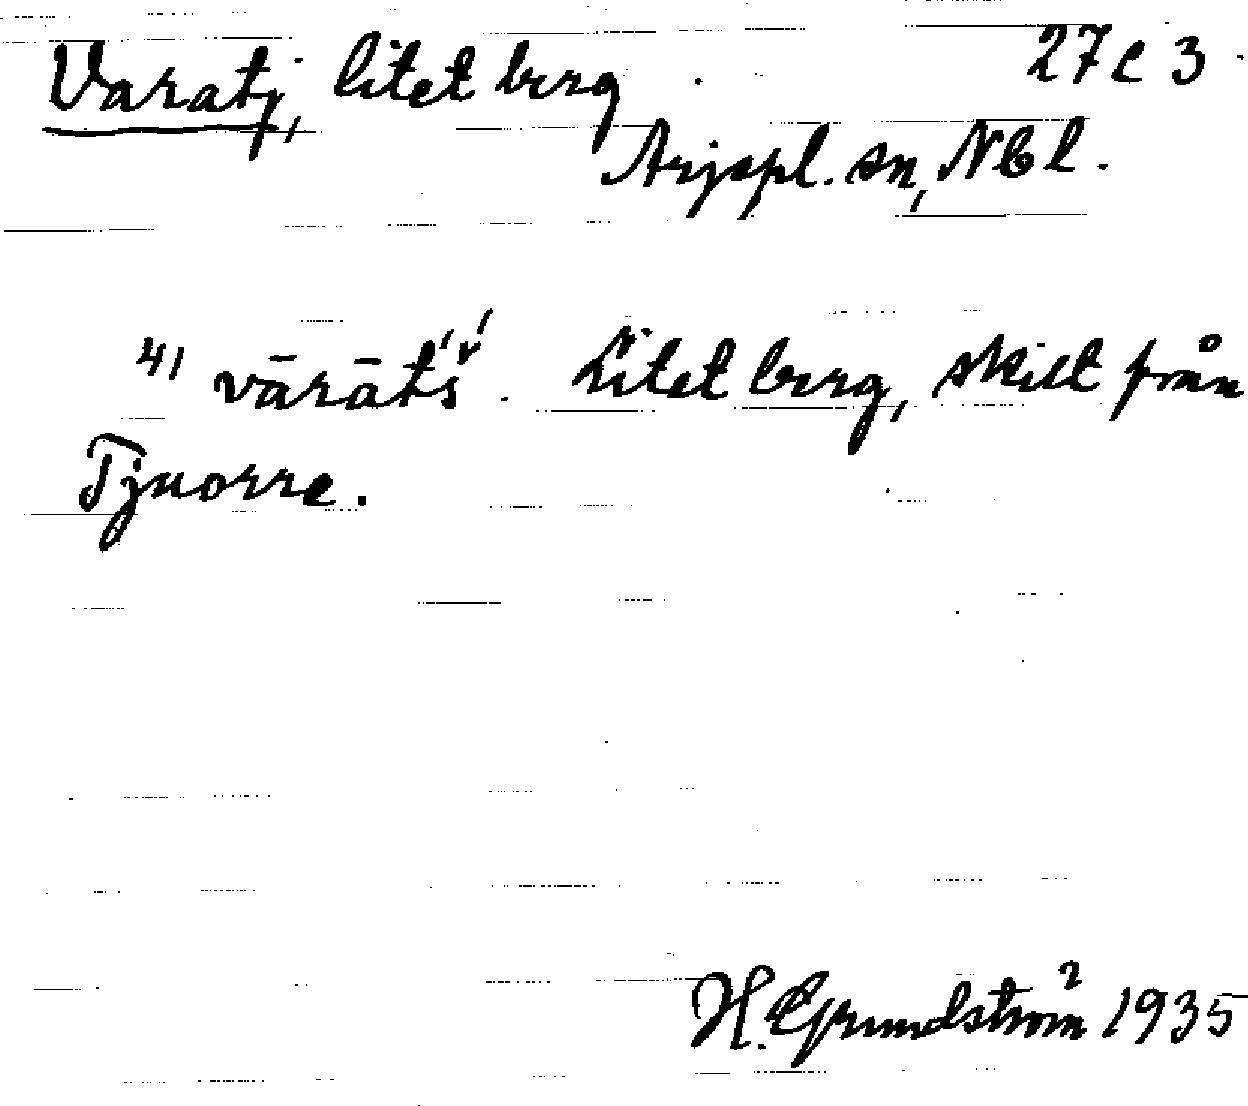 Varatj, litet berg 27 l 3
Arjepl. sn, Nbl.
41 vārāt́š́. Litet berg, skilt från
Tjuorre.
H. Grundström 1935